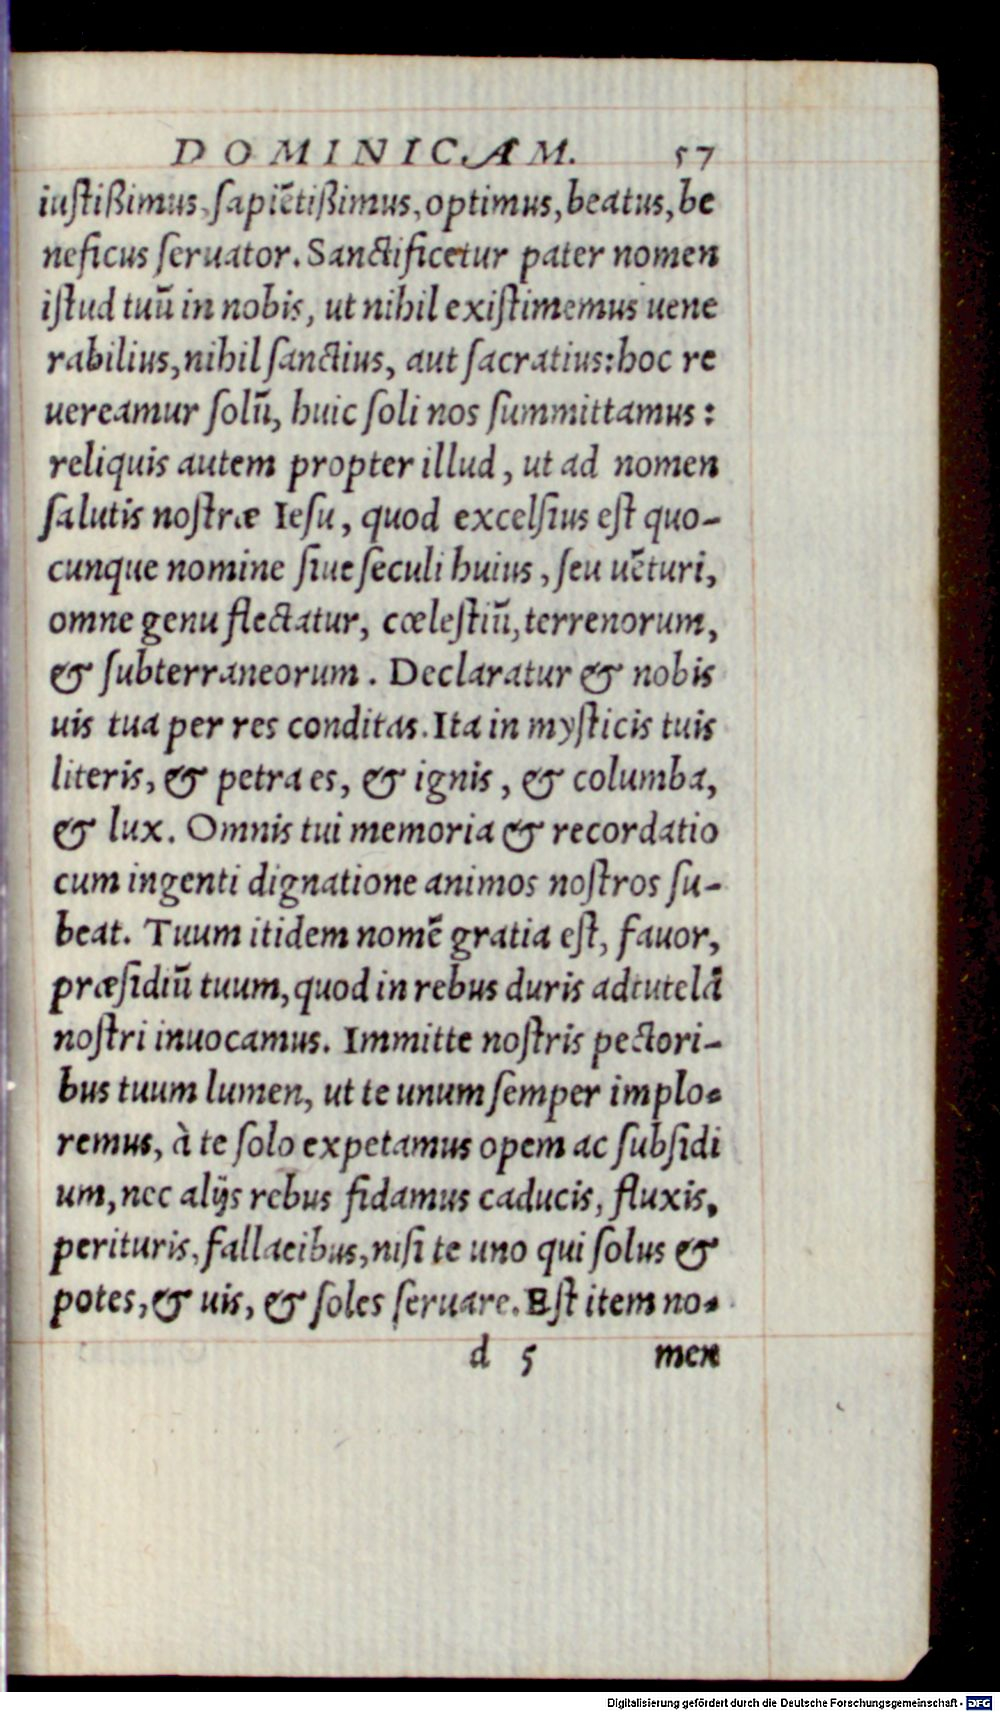 DOMINICAM. 57
iustißimus, sapiẽtißimus, optimus, beatus, be
neficus seruator. Sanctificetur pater nomen
istud tuũ in nobis, ut nihil existimemus uene
rabilius, nihil sanctius, aut sacratius: hoc re
uereamur solũ, huic soli nos summittamus:
reliquis autem propter illud, ut ad nomen
salutis nostræ Iesu, quod excelsius est quo-
cunque nomine siue seculi huius, seu uẽturi,
omne genu flectatur, cœlestiũ, terrenorum,
& subterraneorum. Declaratur & nobis
uis tua per res conditas. Ita in mysticis tuis
literis, & petra es, & ignis, & columba,
& lux. Omnis tui memoria & recordatio
cum ingenti dignatione animos nostros su-
beat. Tuum itidem nomẽ gratia est, fauor,
præsidiũ tuum, quod in rebus duris ad tutelã
nostri inuocamus. Immitte nostris pectori-
bus tuum lumen, ut te unum semper implo-
remus, à te solo expetamus opem ac subsidi
um, nec alijs rebus fidamus caducis, fluxis,
perituris, fallacibus, nisi te uno qui solus &
potes, & uis, & soles seruare. Est item no-
d 5 men
Digitalisierung gefördert durch die Deutsche Forschungsgemeinschaft - DFG